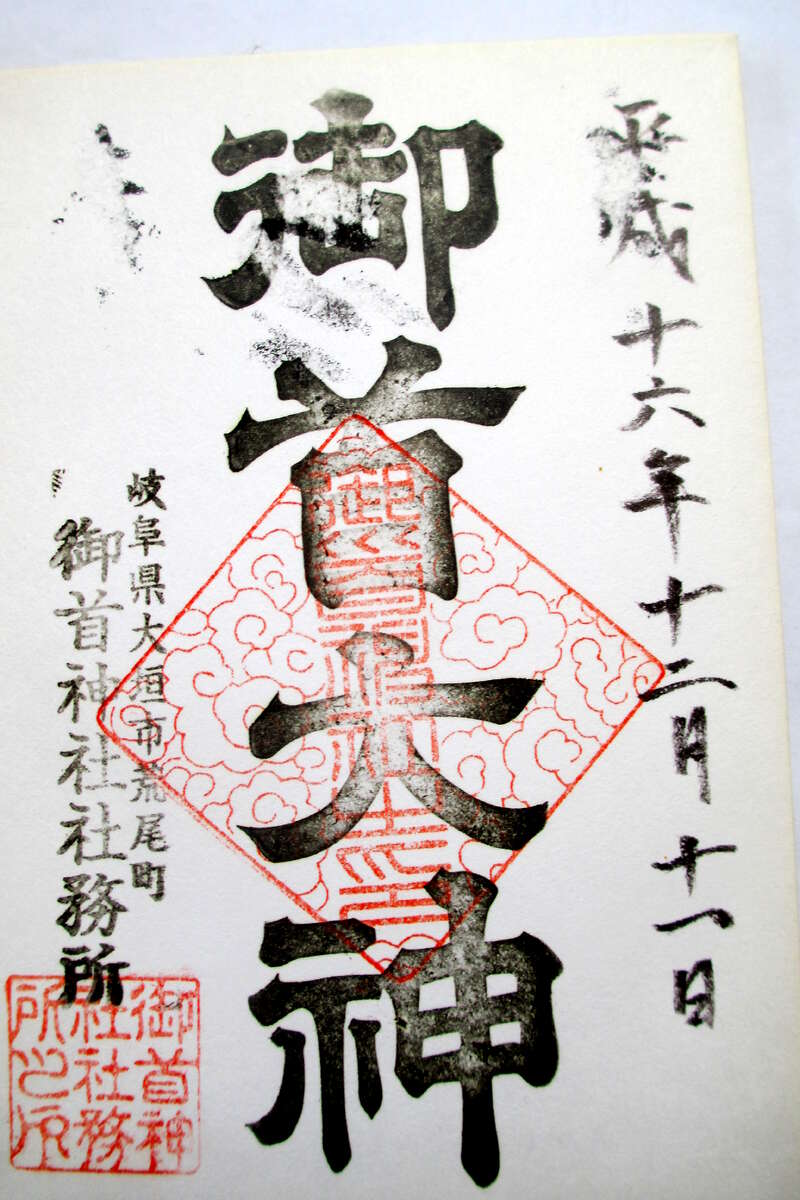 平成十六年十二月十一日
御首大神
岐阜県大垣市荒尾町
御首神社社務所
御首神
社社務
所之印